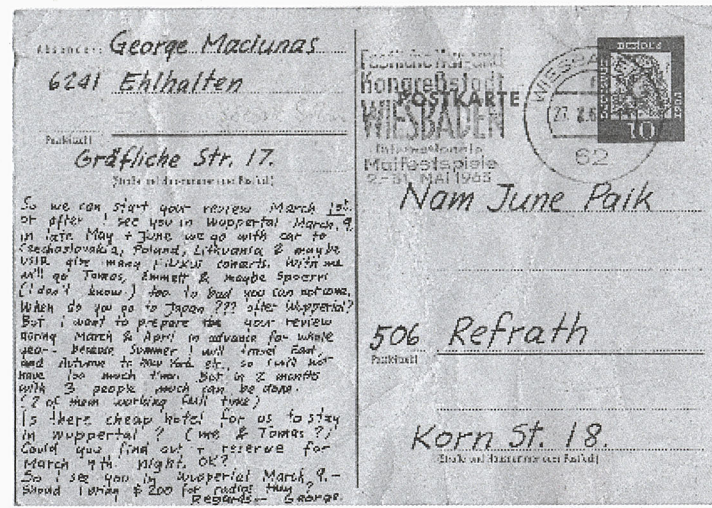 Absender: George Maciunas
6241 Ehlhalten
Postleitzahl
Gräfliche Str. 17.
(Straße und Hausnummer oder Postfach)
So we can start your review March 1st.
or after I see you in Wuppertal March 9
in late May + June we go with car to
Czechoslovakia, Poland, Lithuania & maybe
USSR give many FLUXUS concerts. With me
will go Tomas, Emmett & maybe Spoerri
(I don't know) too bad you can not come.
When do you go to Japan ??? after Wuppertal?
But i want to prepare the your review
during March & April in advance for whole
year - because Summer I will travel East,
and Autumn to New York etc., so I will not
have too much time. But in 2 months
with 3 people much can be done.
(2 of them working full time)
Is there cheap hotel for us to stay
in Wuppertal? (me & Tomas?)
Could you find out + reserve for
March 9th. night, OK?
So I see you in Wuppertal March 9.-
Should I bring $200 for radios they?
Regards - George.
Kongreßstadt
WIESBADEN
Internationale
Maifestspiele
2.-31. MAI 1963
POSTKARTE
WIESBA
27. 2.6
62
DEUTSCHE
10
Nam June Paik
506 Refrath
Postleitzahl
Korn St. 18.
(Straße und Hausnummer oder Postfach)